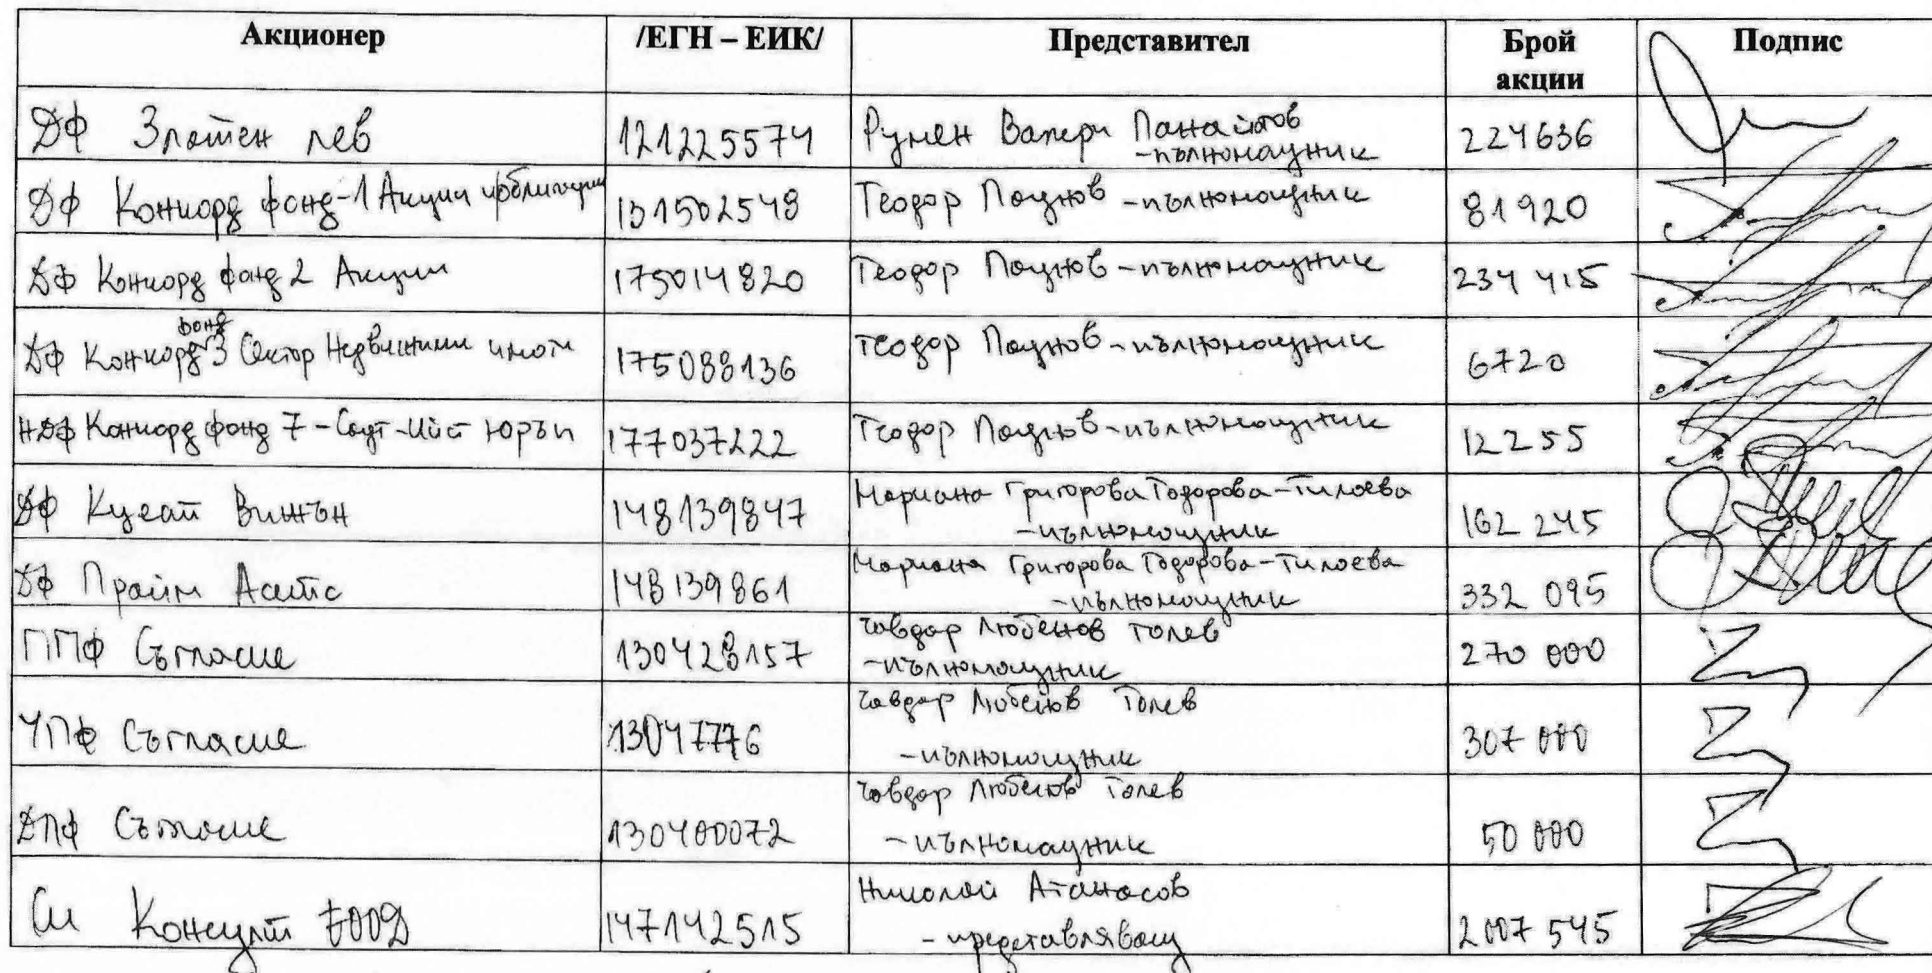 Акционер /ЕГН – ЕИК/ Представител Брой акции Подпис
ДФ Златен лев 121225574 Румен Валери Панайотов -пълномощник 224636
ДФ Конкорд фонд-1 Акции и облигации 131502548 Теодор Поцнов -пълномощник 81920
ДФ Конкорд фонд 2 Акции 175014820 Теодор Поцнов -пълномощник 234 415
ДФ Конкорд фонд 3 Сектор Недвижими имоти 175088136 Теодор Поцнов -пълномощник 6720
НДФ Конкорд фонд 7 - Саут-Ийст Юръп 177037222 Теодор Поцнов -пълномощник 12255
ДФ Вижън 148139847 Мариана Григорова Тодорова-Тилоева -пълномощник 162 245
ДФ Прайм Асетс 148139861 Мариана Григорова Тодорова-Тилоева -пълномощник 332 095
ППФ Съгласие 130428157 Чавдар Любенов Голев -пълномощник 270 000
УПФ Съгласие 13047776 Чавдар Любенов Голев -пълномощник 307 000
ДПФ Съгласие 130400072 Чавдар Любенов Голев -пълномощник 50 000
Си Консулт ЕООД 147142515 Николай Атанасов - представляващ 2 007 545